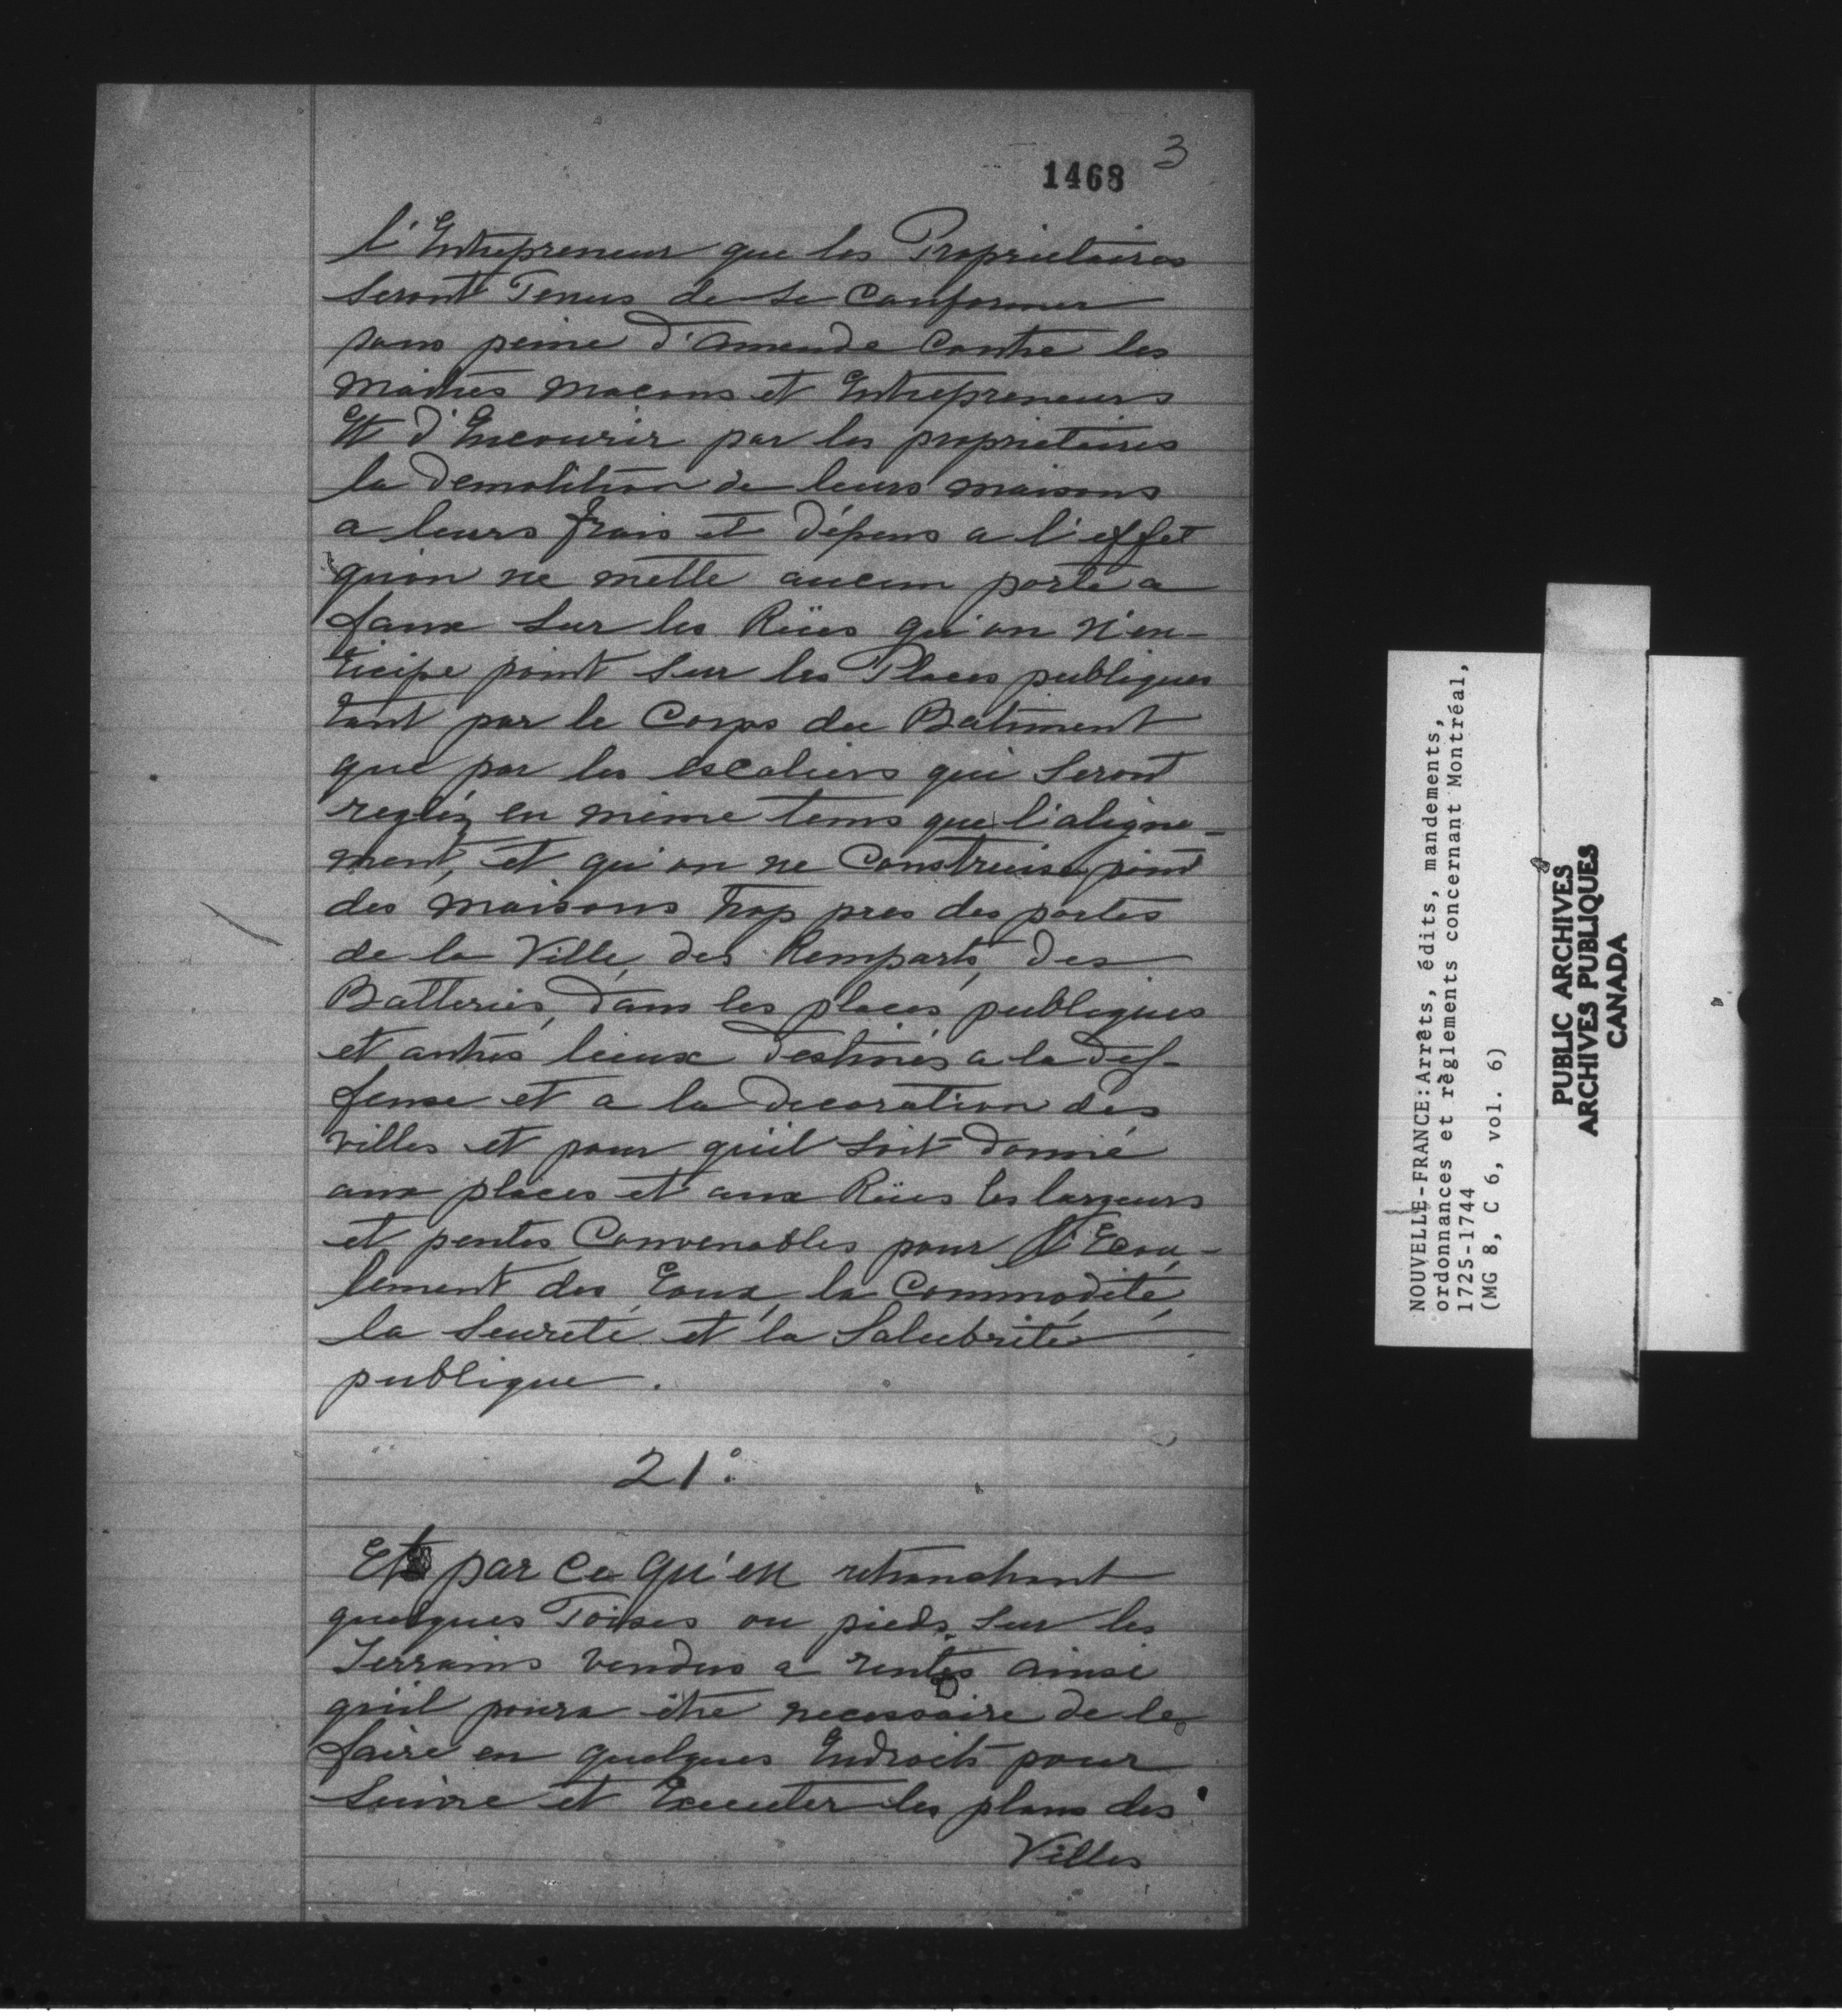 3
1468
l'Entrepreneur que les Proprietaires
seront Tenus de se Conformer
sous peine d'amende Contre les
maitres macons et Entrepreneurs
Et d'Encourir par les proprietaires
la Demolition de leurs maisons
a leurs frais et dépens a l'effet
qu'on ne mette aucun porte a
faux sur les Rües qu'on n'en-
ticipe point sur les Places publiques
tant par le Corps du Batiment
que par les escaliers qui seront
regléz en même tems que l'aligne-
ment, et qu'on ne Construise point
des maisons trop pres des portes
de la Ville, des Remparts, des
Batteries, dans les places publiques
et autres lieux Destinés a la def-
fense et a la Decoration des
villes et pour qu'il soit donné
aux places et aux Rües les largeurs
et pentes Convenables pour l'Ecou-
lement des Eaux, la Commodité,
la seureté et la Salubrité
publique.
21°.
Et par ce qu'en retranchant
quelques Toises ou pieds sur les
Terrains vendus a rentes ainsi
qu'il poura être necessaire de le
faire en quelques Endroits pour
suivre et Executer les plans des
Villes
NOUVELLE-FRANCE: Arrêts, édits, mandements,
ordonnances et règlements concernant Montréal,
1725-1744
(MG 8, C 6, vol. 6)
PUBLIC ARCHIVES
ARCHIVES PUBLIQUES
CANADA